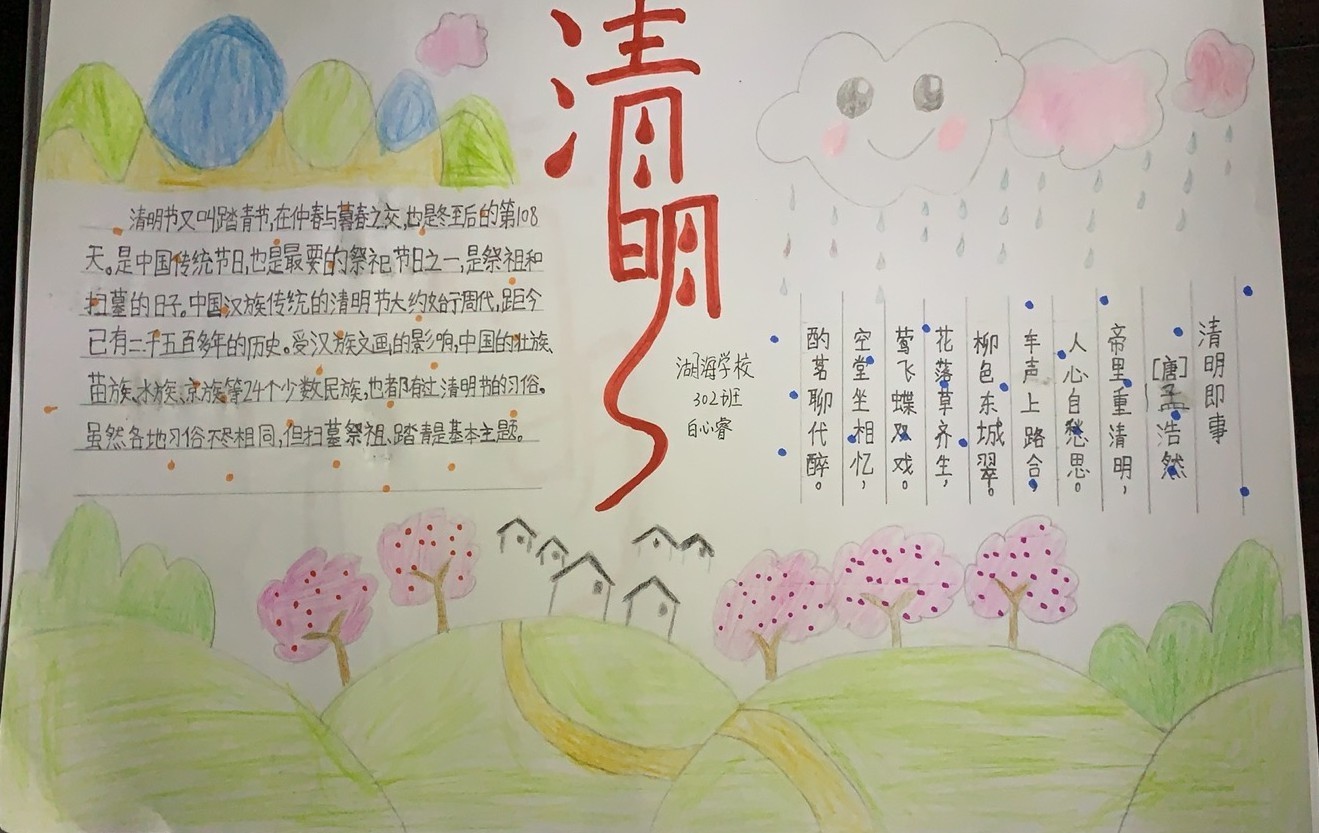 清明
清明节又叫踏青节,在仲春与暮春之交,也是冬至后的第108
天。是中国传统节日,也是最要的祭祀节日之一,是祭祖和
扫墓的日子。中国汉族传统的清明节大约始于周代,距今
已有二千五百多年的历史。受汉族文画的影响,中国的壮族、
苗族、水族、京族等24个少数民族,也都有过清明节的习俗。
虽然各地习俗不尽相同,但扫墓祭祖、踏青是基本主题。
湖海学校
302班
白心睿
清明即事
[唐]孟浩然
帝里重清明,
人心自愁思。
车声上路合,
柳色东城翠。
花落草齐生,
莺飞蝶双戏。
空堂坐相忆,
酌茗聊代醉。